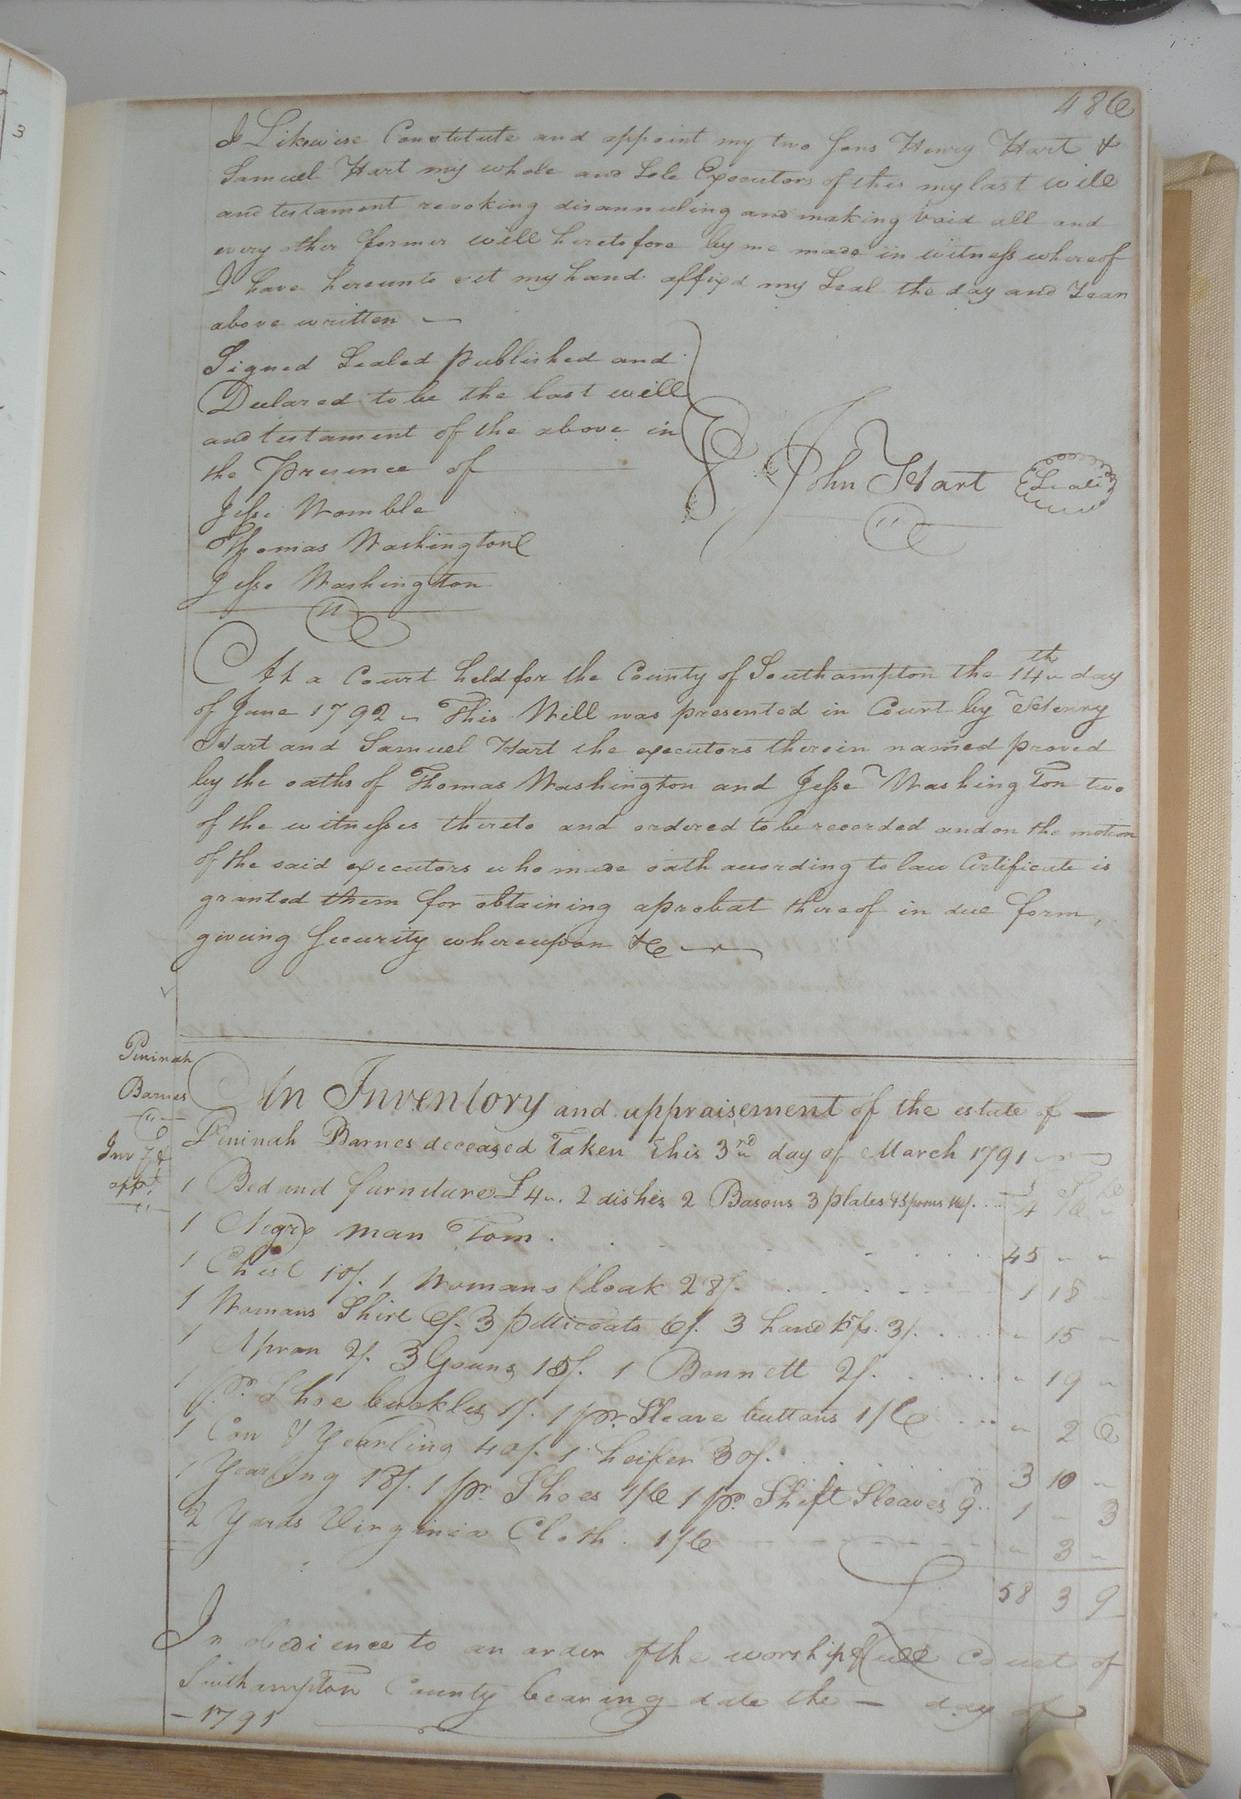 486
I Likewise Constitute and appoint my two Sons Henry Hart &
Samuel Hart my whole and Sole Executors of this my last will
and testament revoking disannuling and making void all and
every other former will heretofore by me made in witness whereof
I have hereunto set my hand affixd my Seal the day and Year
above written
Signed Sealed published and
Declared to be the last will
and testament of the above in
the Presence of
Jesse Womble
Thomas Washington
Jesse Washington
John Hart Seal
At a Court held for the County of Southampton the 14th day
of June 1792 This Will was presented in Court by Henry
Hart and Samuel Hart the executors therein named proved
by the oaths of Thomas Washington and Jesse Washington two
of the witnesses thereto and ordered to be recorded and on the motion
of the said executors who made oath according to law Certificate is
granted them for obtaining a probat thereof in due form,
giveing Security whereupon &c
Peninah
Barnes
Inv. &
appt.
An Inventory and appraisement of the estate of
Peninah Barnes deceased Taken this 3rd day of March 1791
1 Bed and furniture £4 2 dishes 2 Basons 3 plates 4 Spoons 16/. 4 16
1 Negro man Tom 45 " "
1 Chest 10/. 1 Womans Cloak 28/. 1 18 "
1 Womans Shirt 6/. 3 petticoats 6/. 3 handkfs. 3/. " 15 "
1 Apron 2/. 3 Gouns 15/. 1 Bonnett 2/. " 19 "
1 pr. Shoe buckles 1/. 1 pr. Sleave buttons 1/6 " 2 6
1 Cow & Yearling 40/. 1 heifer 30/. 3 10 "
1 Yearling 18/. 1 pr. Shoes 1/6 1 pr. Shift Sleaves 9d 1 " 3
2 Yards Virginia Cloth 1/6 " 3 "
£ 58 3 9
In obedience to an order of the worshipfull Court of
Southampton County bearing date the — day of
— 1791